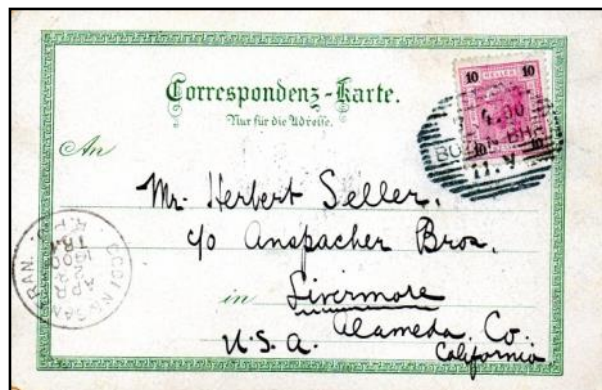 Correspondenz-Karte.
Nur für die Adresse.
10 HELLER 10
4.00
10 10
11.V
An
Mr. Herbert Seller,
c/o Anspacher Bros,
in Livermore
Alameda, Co.
U.S.A. California
RAN.
AP
2
1900